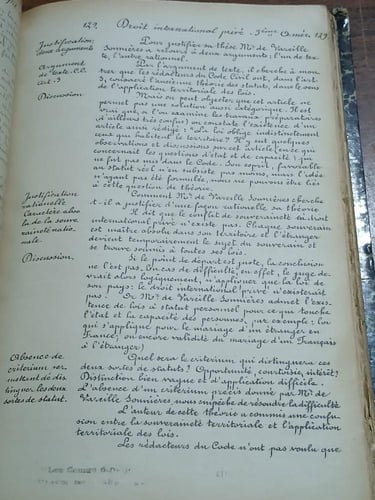 129. Droit international privé. 3ème Année 129.
Justification:
deux arguments
Pour justifier sa thèse Mr de Vareille
Sommières a recours à deux arguments; l'un de tex-
te, l'autre rationnel.
Argument
de texte. C.C.
Art. 3
Par l'argument de texte, il cherche à mon-
trer que les rédacteurs du Code Civil ont, dans l'art.
3, consacré l'ancienne théorie des statuts, dans le sens
de l'application territoriale des lois.
Discussion.
Mais on peut objecter que cet article ne
permet pas une solution aussi catégorique. Il est
vrai que, si l'on examine les travaux préparatoires
(d'ailleurs très confus) on constate l'existence d'un
article ainsi rédigé: "La loi oblige indistinctement
ceux qui habitent le territoire". Il y eut quelques
observations et discussions sur cet article (en ce qui
concernait les questions d'état et de capacité) qui
ne fut pas mis dans le Code. Son esprit, favorable
au statut réel n'en subsiste pas moins, mais l'idée
n'ayant pas été formulée, nous ne pouvons être liés
à cette question de théorie.
Justification
rationnelle
Caractère abso-
lu de la souve-
raineté natio-
nale.
Comment Mr de Vareille Sommières cherche-
t-il à justifier d'une façon rationnelle sa théorie
Il dit que le conflit de souveraineté en droit
international privé n'existe pas. Chaque souverain
est maître absolu dans son territoire et l'étranger
devient temporairement le sujet du souverain et
se trouve soumis à toutes ses lois.
Discussion.
Si le point de départ est juste, la conclusion
ne l'est pas. En cas de difficulté, en effet, le juge de-
vrait alors logiquement, n'appliquer que la loi de
son pays: le droit international privé n'existerait
pas. Or Mr de Vareille Sommières admet l'exis-
tence de lois à statut personnel pour ce qui touche
l'état et la capacité des personnes, par exemple: loi
qui s'applique pour le mariage d'un étranger en
France, ou encore validité du mariage d'un Français
à l'étranger)
Absence de
criterium per-
mettant de dis-
tinguer les deux
sortes de statut.
Quel sera le criterium qui distinguera ces
deux sortes de statuts? Opportunité, courtoisie, intérêt?
Distinction bien vague et d'application difficile.
L'absence d'un criterium précis donné par Mr de
Vareille Sommières, nous empêche de résoudre la difficulté
L'auteur de cette théorie a commis une confu-
sion entre la souveraineté territoriale et l'application
territoriale des lois.
Les rédacteurs du Code n'ont pas voulu que